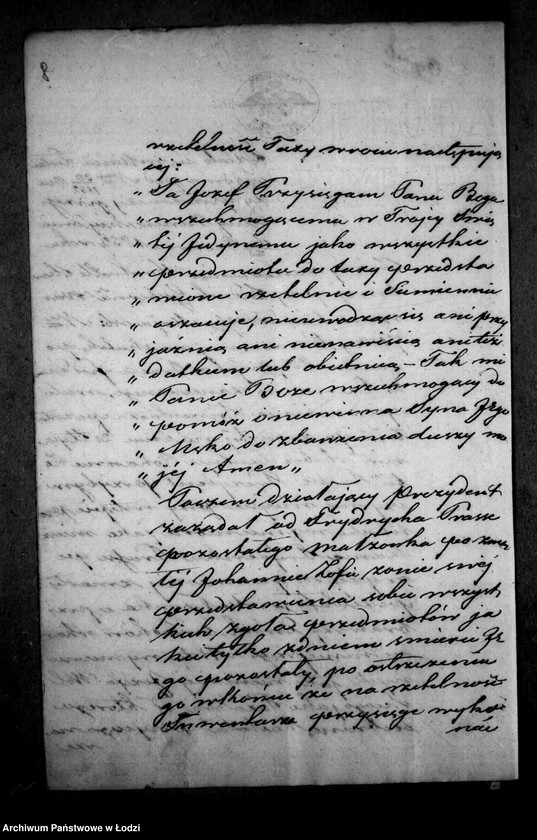 8
rzetelność Taxy w rocie następują
cej:
„ Ja Józef Przysięgam Panu Bogu
„ wszechmogącemu w Trójcy Świę
„ tej Jedynemu jako wszystkie
„ przedmiota do taxy przedsta
„ wione rzetelnie i Sumiennie
„ oszacuję, nieuwodząc się ani przy
„ jaźnią ani nienawiścią ani też
„ datkiem lub obietnicą – Tak mi
„ Panie Boże wszechmogący do
„ pomóż i niewinna Syna Jego
„ Męko do zbawienia duszy mo
„ jéj Amen „
Poczem działający Prezydent
zażądał od Frydrycha
pozostałego małżonka po zmar
łéj Johannie Zofii żonie swéj
przedstawienia sobie wszyst
kich zgoła przedmiotów ja
kie tylko z dniem śmierci Je
go pozostały, po ostrzeżeniu
go wkońcu że na rzetelność
Inwentarza przysięgę wyko
nać
Archiwum Państwowe w Łodzi